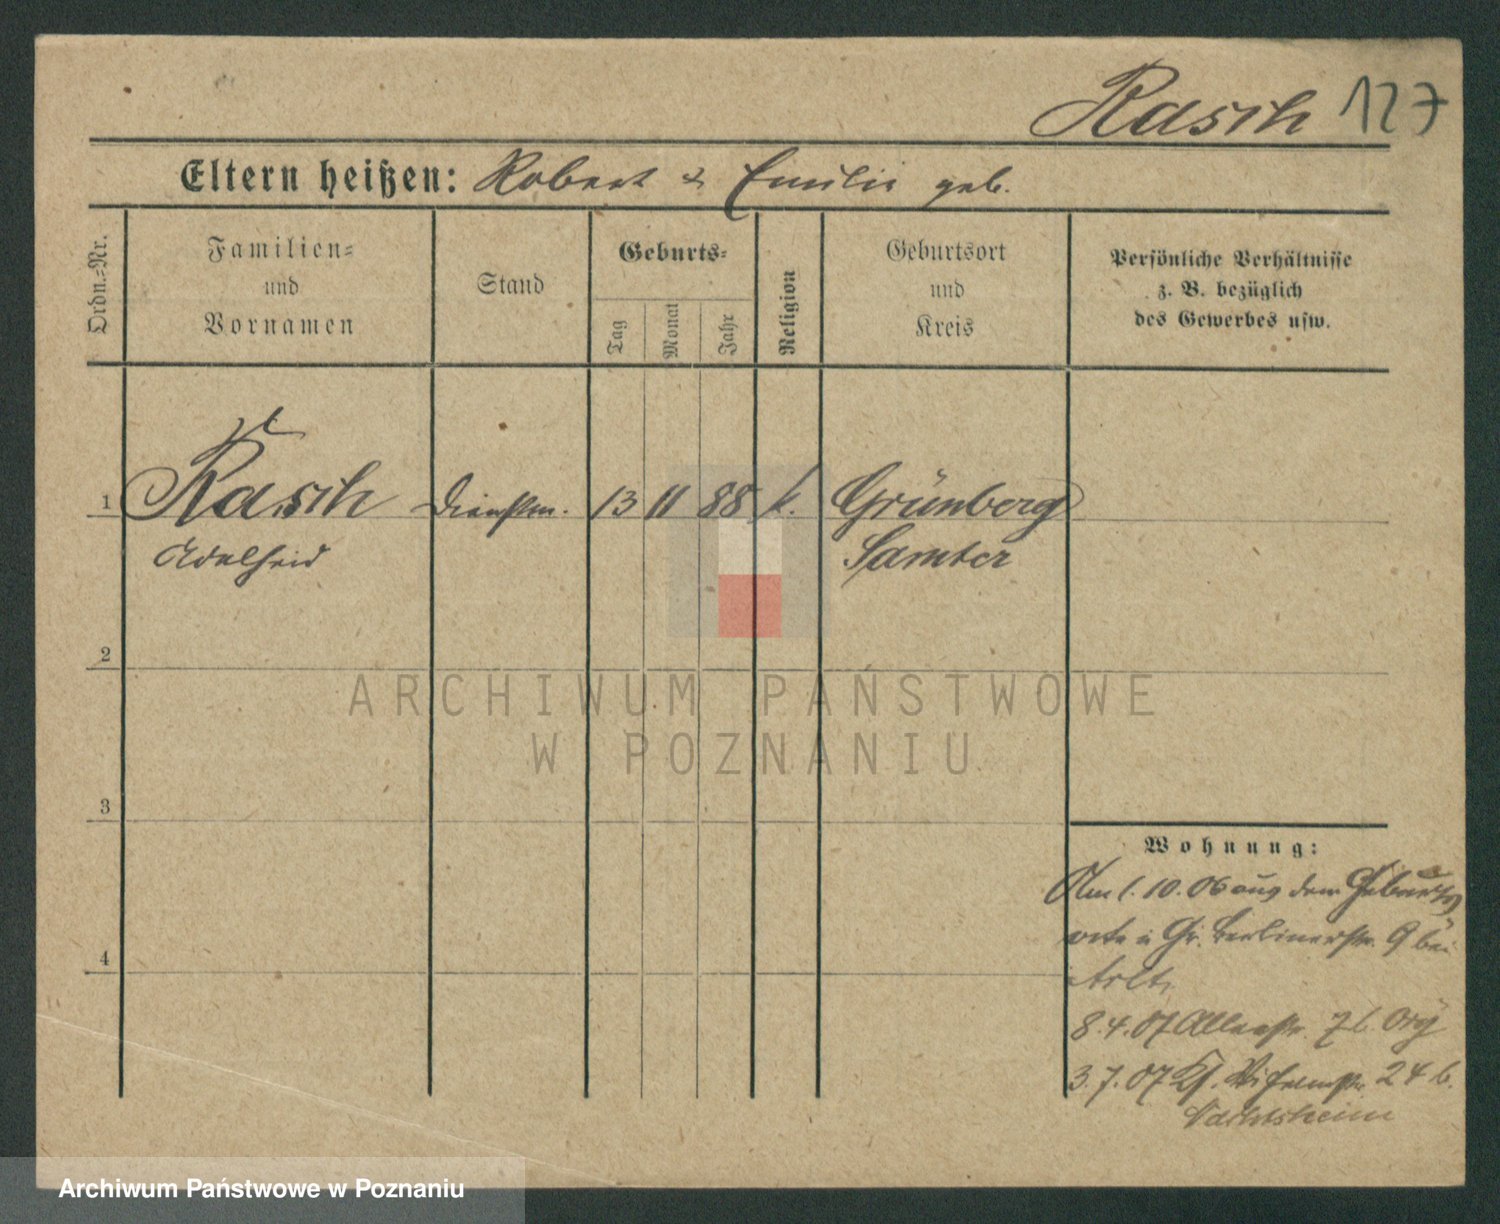 Rasch 127
Eltern heißen: Robert & Emilie geb.
Ordn.=Nr.
Familien=
und
Vornamen
Stand
Geburts=
Tag
Monat
Jahr
Religion
Geburtsort
und
Kreis
Persönliche Verhältnisse
z. B. bezüglich
des Gewerbes usw.
1 Rasch Dienstm. 13 11 88 k. Grünberg
Adelheid Samter
2
ARCHIWUM PAŃSTWOWE
W POZNANIU
3
Wohnung:
Am 1. 10. 06 aus dem Geburts
orte n Gr. Berlinerstr. 9 bei
Arlt
4
8. 4. 07 7 b.
3. 7. 07 24 b.
Nachtsheim
Archiwum Państwowe w Poznaniu